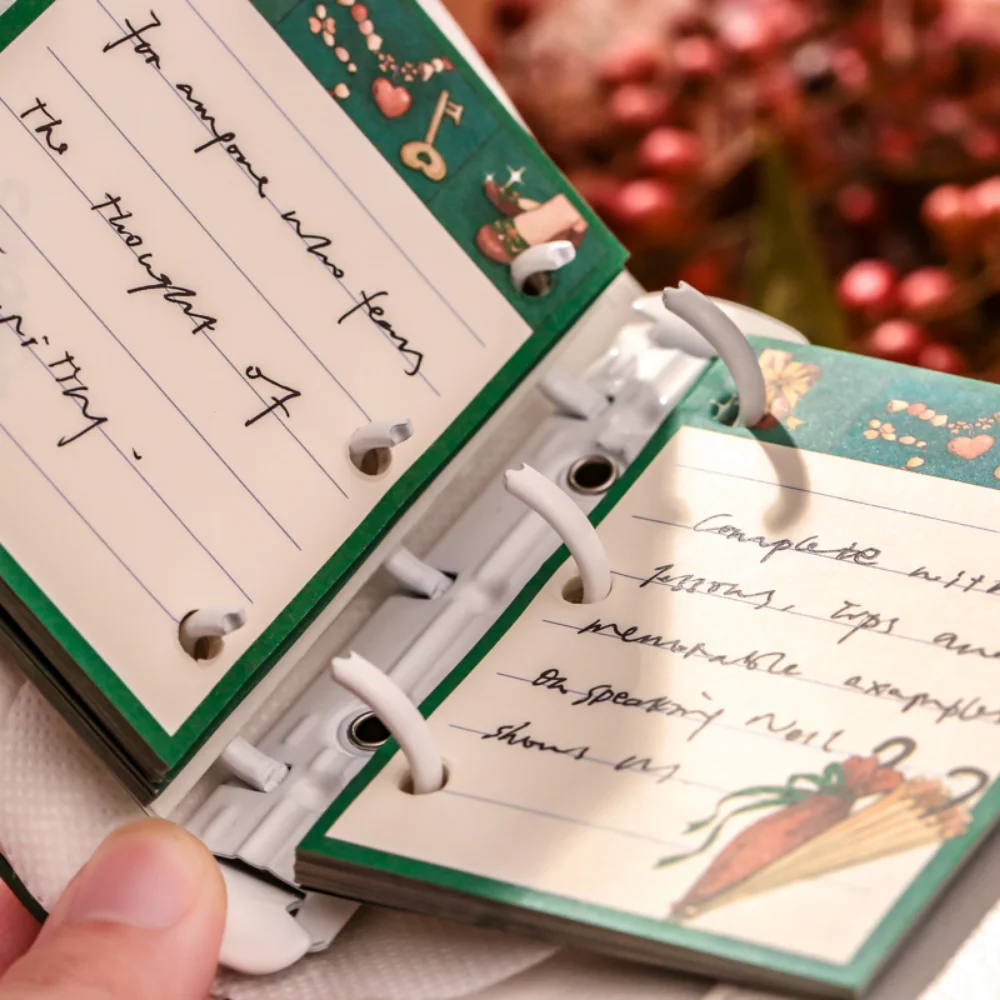 For anyone who fears
the thought of
writing.
Complete with
lessons, tips and
memorable examples
on speaking Neil
shows us